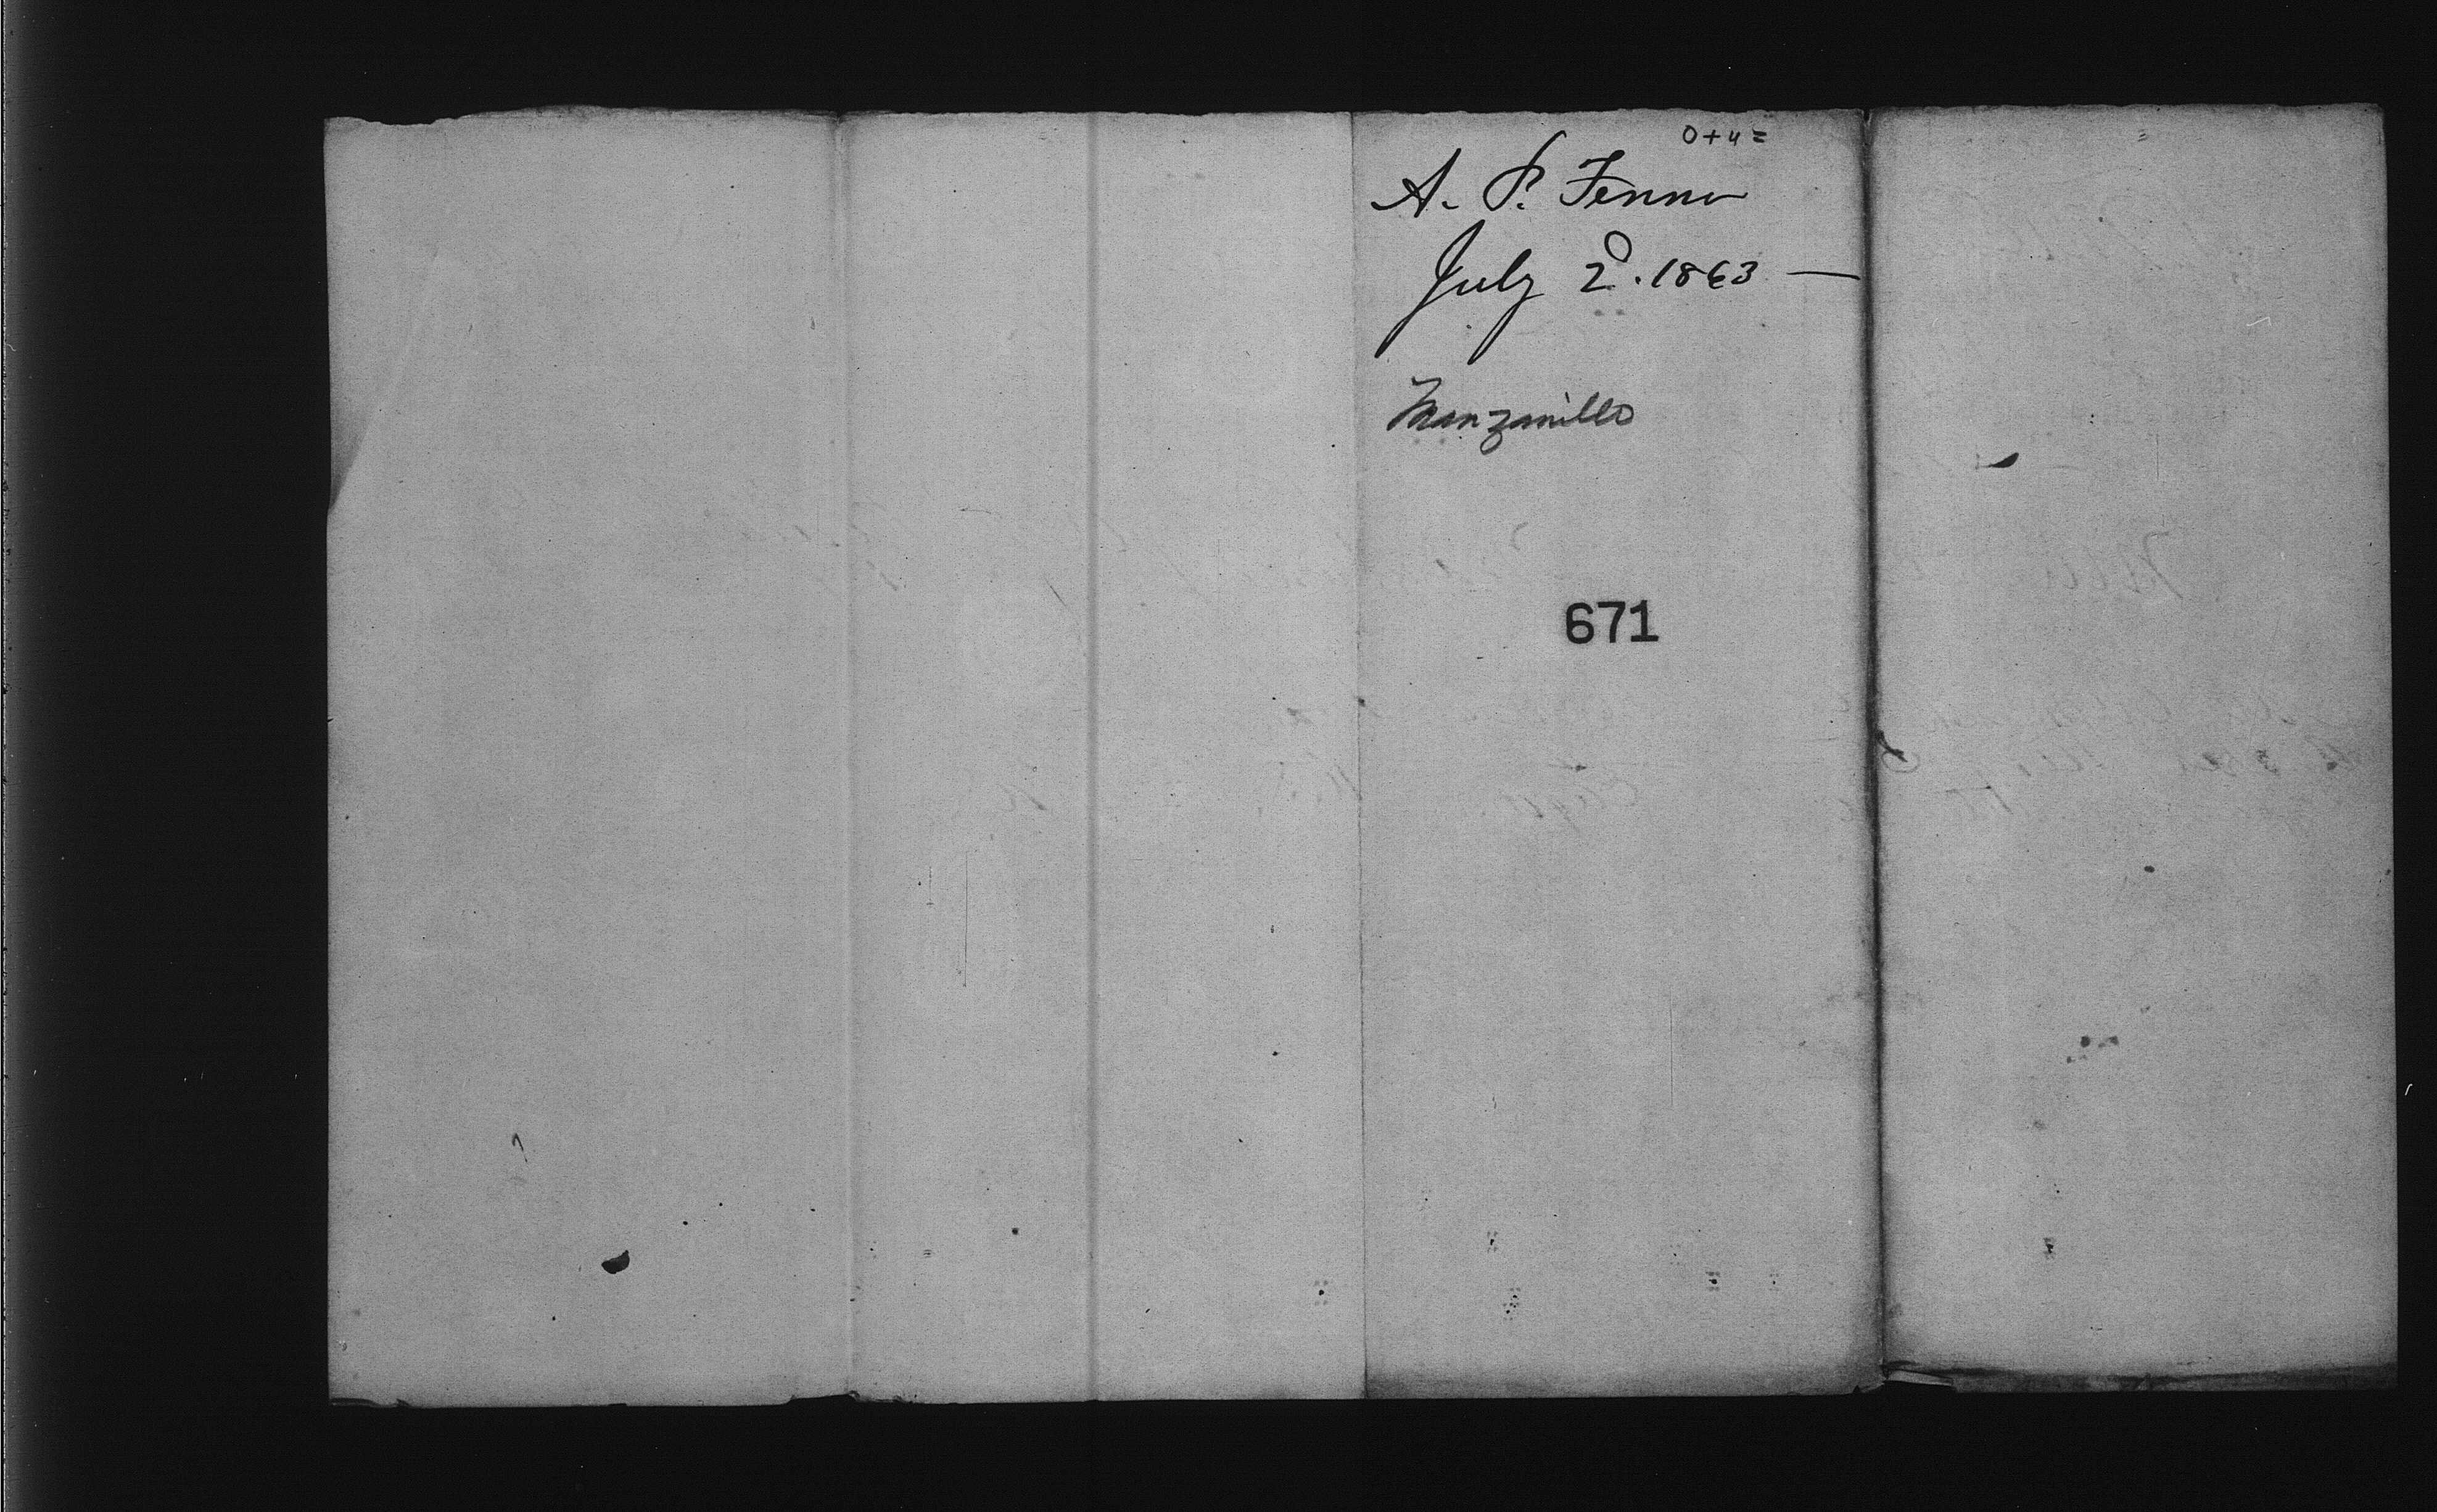 0+4=
A. P. Fenno
July 2d. 1863 —
Manzanillo
671